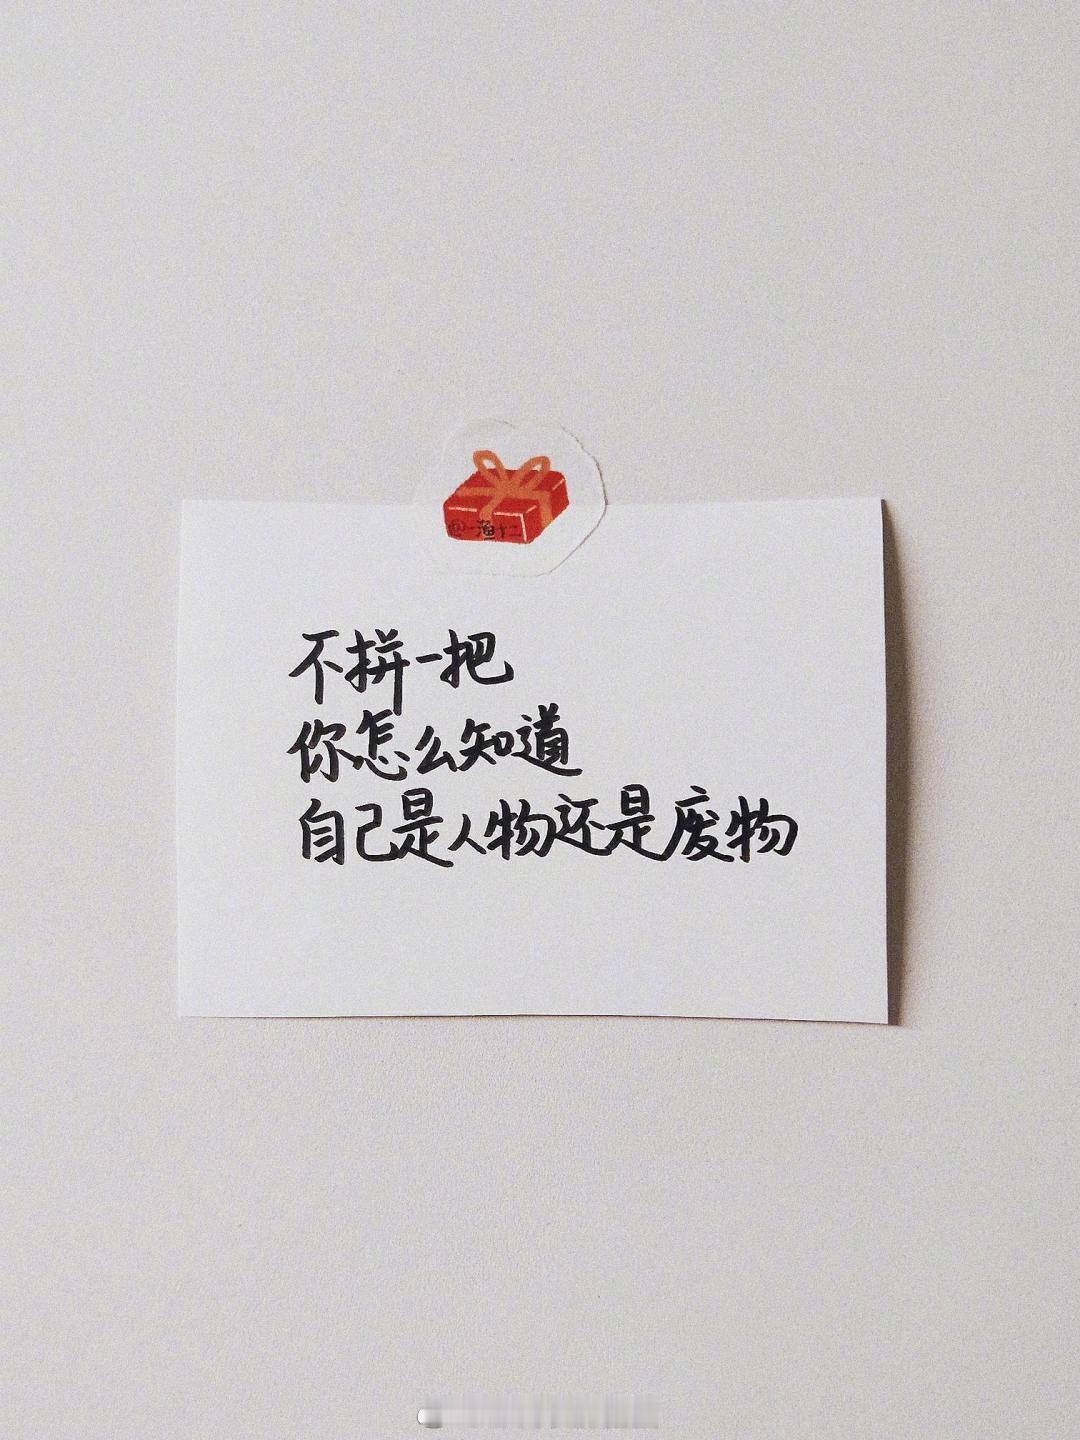 @一渔十二
不拼一把
你怎么知道
自己是人物还是废物